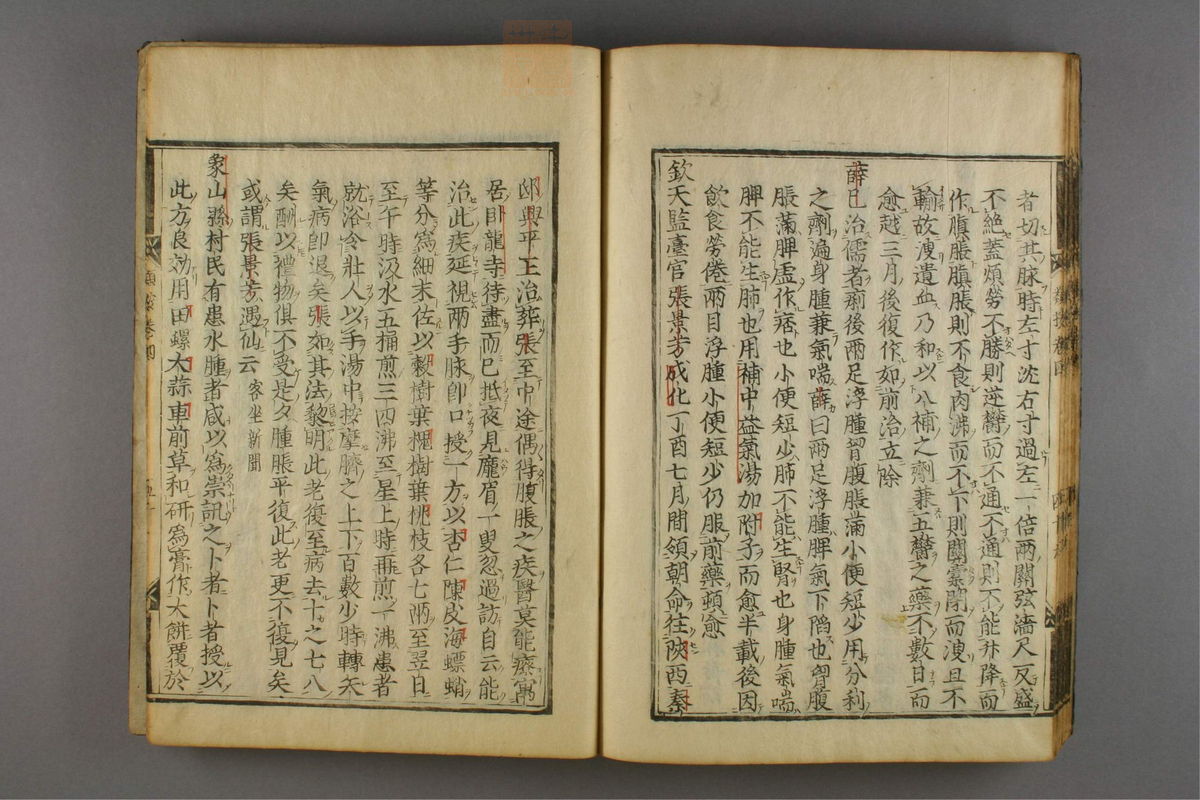 者切其脉時左寸沈右寸過左一倍兩關弦濇尺反盛
不絕蓋煩勞不勝則逆鬱而不通不通則不能升降而
作腹脹䐜脹則不食肉沸而不下則關橐閉而溲且不
輸故溲遺血乃和以八補之劑兼五鬱之藥不數日而
愈越三月後復作如前治立除
薛已治儒者痢後兩足浮腫胷腹脹滿小便短少用分利
之劑遍身腫兼氣喘薛曰兩足浮腫脾氣下陷也胷腹
脹滿脾虛作痞也小便短少肺不能生腎也身腫氣喘
脾不能生肺也用補中益氣湯加附子而愈半載後因
飲食勞倦兩目浮腫小便短少仍服前藥頓愈
欽天監臺官張景芳成化丁酉七月間領朝命往陜西秦
邸興平王治葬張至中途偶得腹脹之疾醫莫能療寓
居卧龍寺待盡而已抵夜見龐眉一叟忽過訪自云能
治此疾延視兩手脉卽口授一方以杏仁陳皮海螵蛸
等分爲細末佐以穀樹葉槐樹葉桃枝各七兩至翌日
至午時汲水五桶煎三四沸至星上時再煎一沸患者
就浴令壯人以手湯中按摩臍之上下百數少時轉矢
氣病卽退矣張如其法黎明此老復至病去十之七八
矣酬以禮物俱不受是夕腫脹平復此老更不復見矣
或謂張景芳遇仙云 客坐新聞
象山縣村民有患水腫者咸以爲祟訊之卜者卜者授以
此方良効用田螺大蒜車前草和研爲膏作大餅覆於